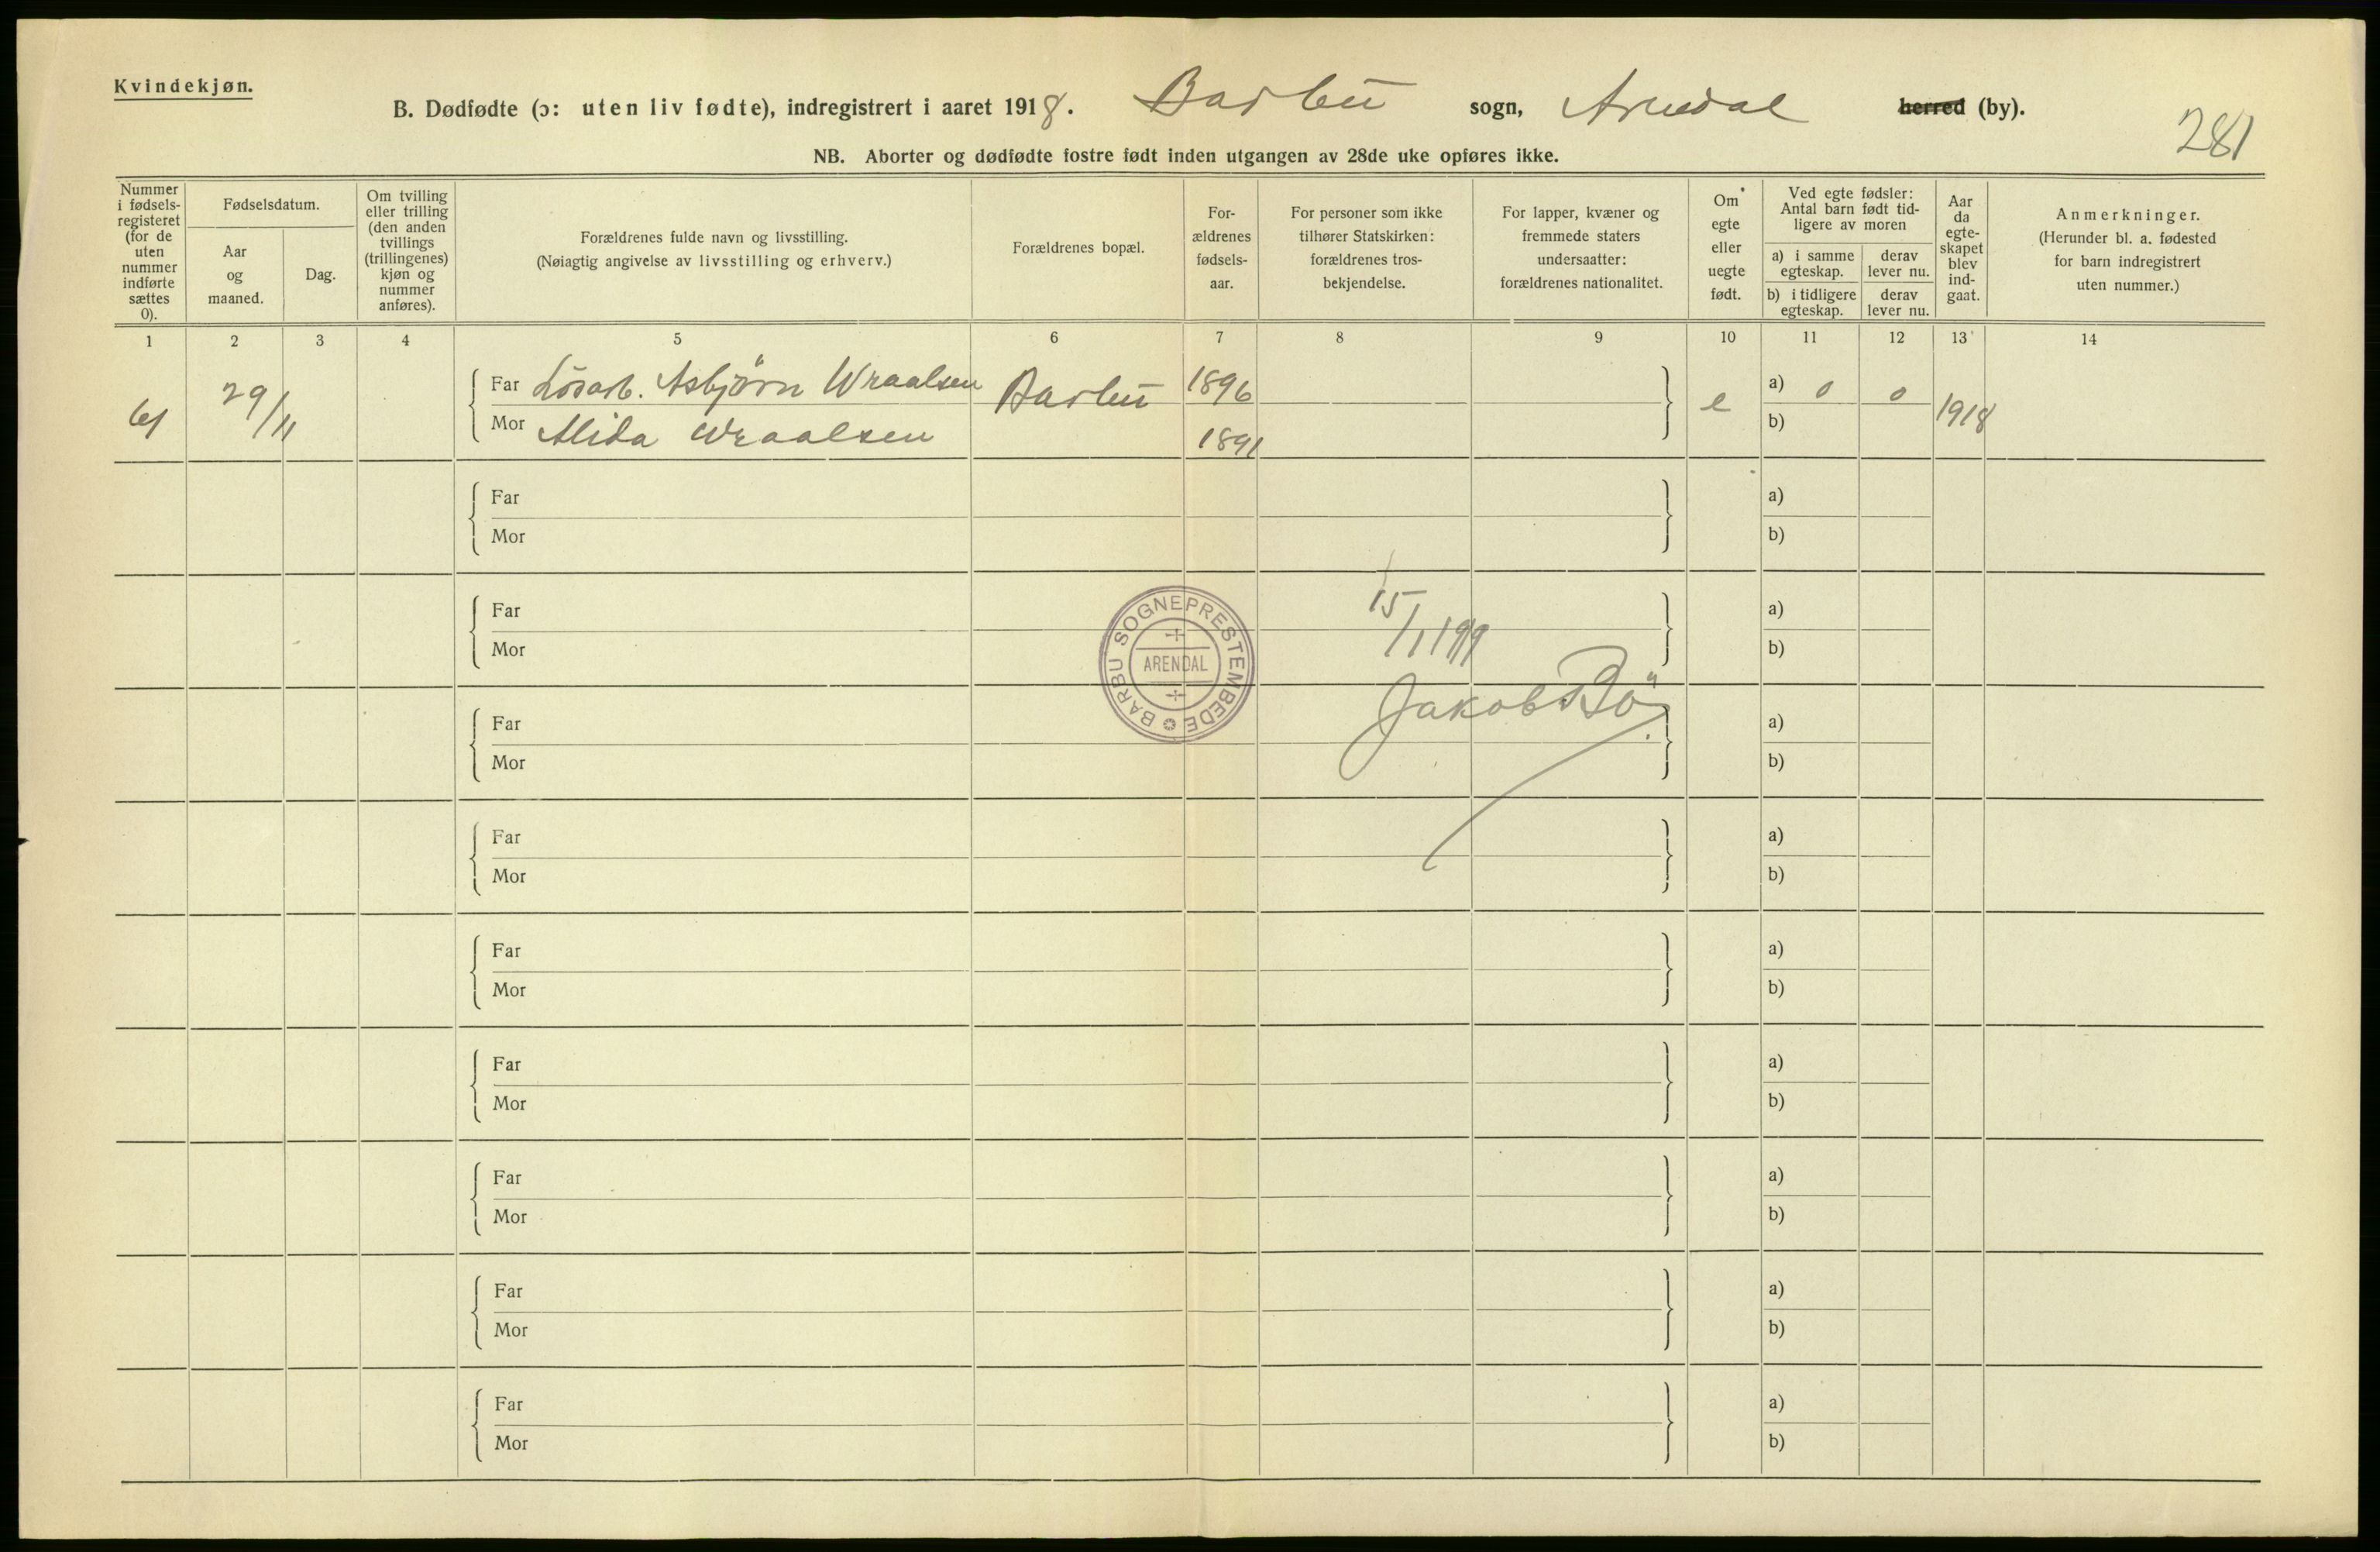 Kvindekjøn.
B. Dødfødte (ɔ: uten liv fødte), indregistrert i aaret 1918. Barbu sogn, Arendal herred (by).
281
NB. Aborter og dødfødte fostre født inden utgangen av 28de uke opføres ikke.
Nummer i fødsels-registeret (for de uten nummer indførte sættes 0).
Fødselsdatum.
Aar og maaned.
Dag.
Om tvilling eller trilling (den anden tvillings (trillingenes) kjøn og nummer anføres).
Forældrenes fulde navn og livsstilling.
(Nøiagtig angivelse av livsstilling og erhverv.)
Forældrenes bopæl.
For-ældrenes fødsels-aar.
For personer som ikke tilhører Statskirken: forældrenes tros-bekjendelse.
For lapper, kvæner og fremmede staters undersaatter: forældrenes nationalitet.
Om egte eller uegte født.
Ved egte fødsler: Antal barn født tid-ligere av moren
a) i samme egteskap.
derav lever nu.
b) i tidligere egteskap.
derav lever nu.
Aar da egte-skapet blev ind-gaat.
Anmerkninger.
(Herunder bl. a. fødested for barn indregistrert uten nummer.)
1 2 3 4 5 6 7 8 9 10 11 12 13 14
61 29/11 Far Lösarb. Asbjörn Wraalsen Barbu 1896 e a) 0 0 1918
Mor Alida Wraalsen 1891 b)
Far a)
Mor b)
Far a)
Mor b)
BARBU SOGNEPRESTEMBEDE
ARENDAL
15/1 1919
Jakob Bö
Far a)
Mor b)
Far a)
Mor b)
Far a)
Mor b)
Far a)
Mor b)
Far a)
Mor b)
Far a)
Mor b)
Far a)
Mor b)